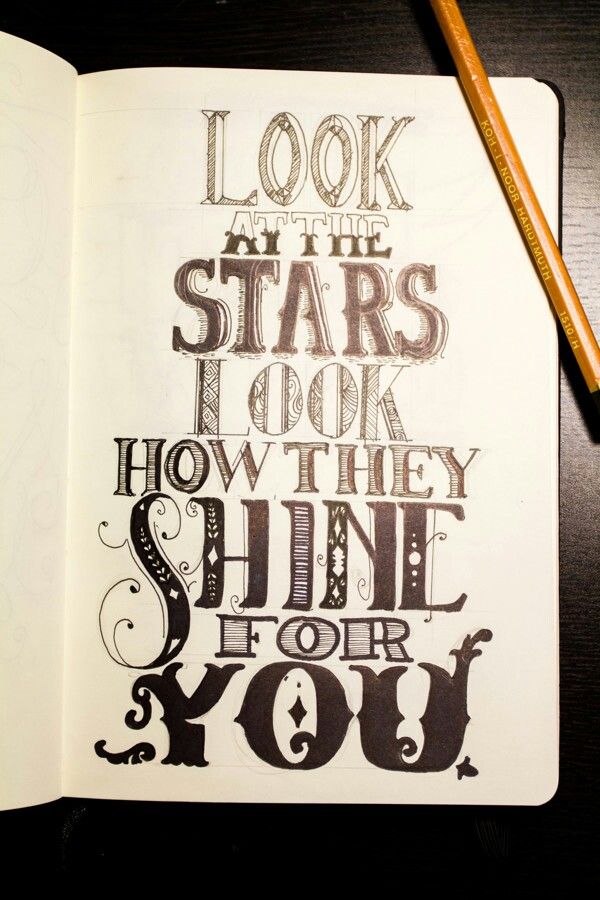 LOOK
AT THE
STARS
LOOK
HOW THEY
SHINE
FOR
YOU.
KOH-I-NOOR HARDTMUTH 1510/H